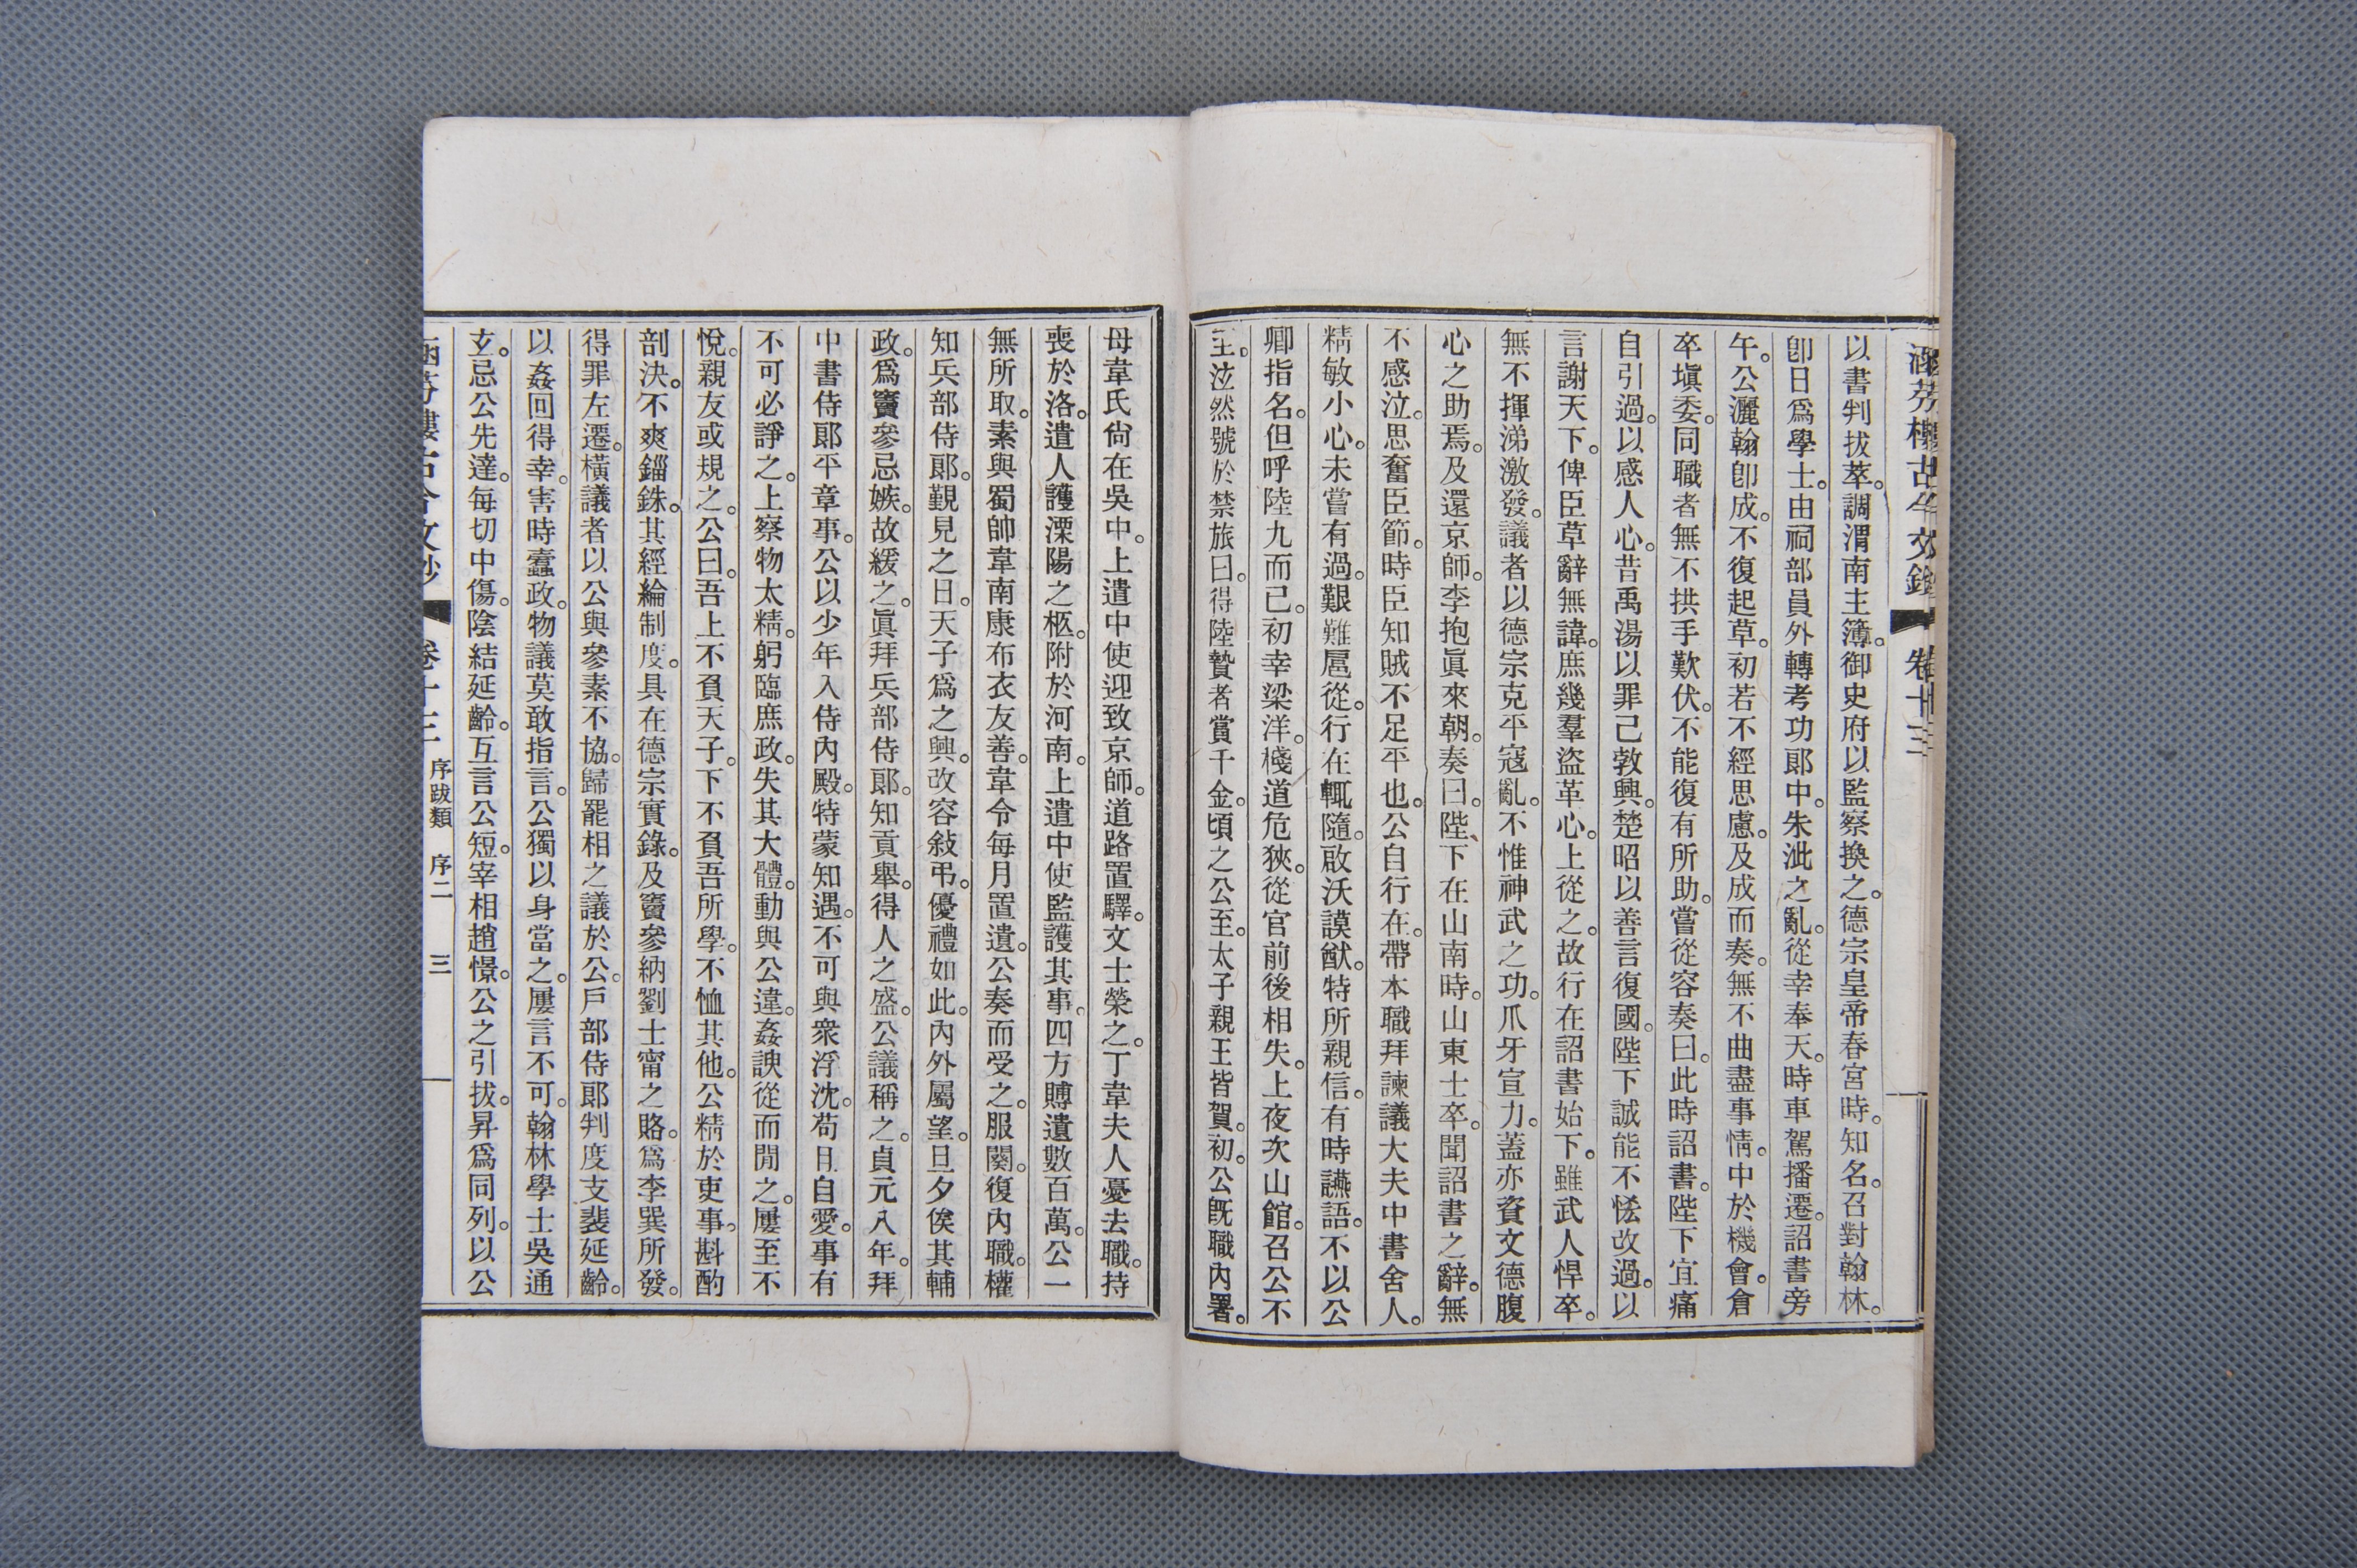 以書判拔萃。調渭南主簿。御史府以監察換之。德宗皇帝春宮時。知名。召對翰林。
卽日爲學士。由祠部員外轉考功郞中。朱泚之亂。從幸奉天。時車駕播遷。詔書旁
午。公灑翰卽成。不復起草。初若不經思慮。及成而奏。無不曲盡事情。中於機會。倉
卒塡委。同職者無不拱手歎伏。不能復有所助。嘗從容奏曰。此時詔書。陛下宜痛
自引過。以感人心。昔禹湯以罪己敦興。楚昭以善言復國。陛下誠能不恡改過。以
言謝天下。俾臣草辭無諱。庶幾羣盜革心。上從之。故行在詔書始下。雖武人悍卒。
無不揮涕激發。議者以德宗克平寇亂。不惟神武之功。爪牙宣力。蓋亦資文德腹
心之助焉。及還京師。李抱眞來朝。奏曰。陛下在山南時。山東士卒。聞詔書之辭。無
不感泣。思奮臣節。時臣知賊不足平也。公自行在。帶本職拜諫議大夫中書舍人。
精敏小心。未嘗有過。艱難扈從。行在輒隨。啟沃謨猷。特所親信。有時讌語。不以公
卿指名。但呼陸九而已。初幸梁洋。棧道危狹。從官前後相失。上夜次山館。召公不
至。泣然號於禁旅曰。得陸贄者賞千金。頃之公至。太子親王皆賀。初。公旣職內署。
母韋氏尙在吳中。上遣中使迎致京師。道路置驛。文士榮之。丁韋夫人憂去職。持
喪於洛。遣人護溧陽之柩。附於河南。上遣中使監護其事。四方賻遺數百萬。公一
無所取。素與蜀帥韋南康布衣友善。韋令每月置遺。公奏而受之。服闋。復內職。權
知兵部侍郞。覲見之日。天子爲之興。改容敍弔。優禮如此。內外屬望。旦夕俟其輔
政。爲竇參忌嫉。故緩之。眞拜兵部侍郞。知貢舉。得人之盛。公議稱之。貞元八年。拜
中書侍郞平章事。公以少年入侍內殿。特蒙知遇。不可與衆浮沈。苟且自愛。事有
不可必諍之。上察物太精。躬臨庶政。失其大體。動與公違。姦諛從而閒之。屢至不
悅。親友或規之。公曰。吾上不負天子。下不負吾所學。不恤其他。公精於吏事。斟酌
剖決。不爽錙銖。其經綸制度。具在德宗實錄。及竇參納劉士甯之賂。爲李巽所發。
得罪左遷。橫議者以公與參素不協。歸罷相之議於公。戶部侍郞判度支裴延齡。
以姦回得幸。害時蠹政。物議莫敢指言。公獨以身當之。屢言不可。翰林學士吳通
玄。忌公先達。每切中傷。陰結延齡。互言公短。宰相趙憬。公之引拔。昇爲同列。以公
卷十三 序跋類 序二 三